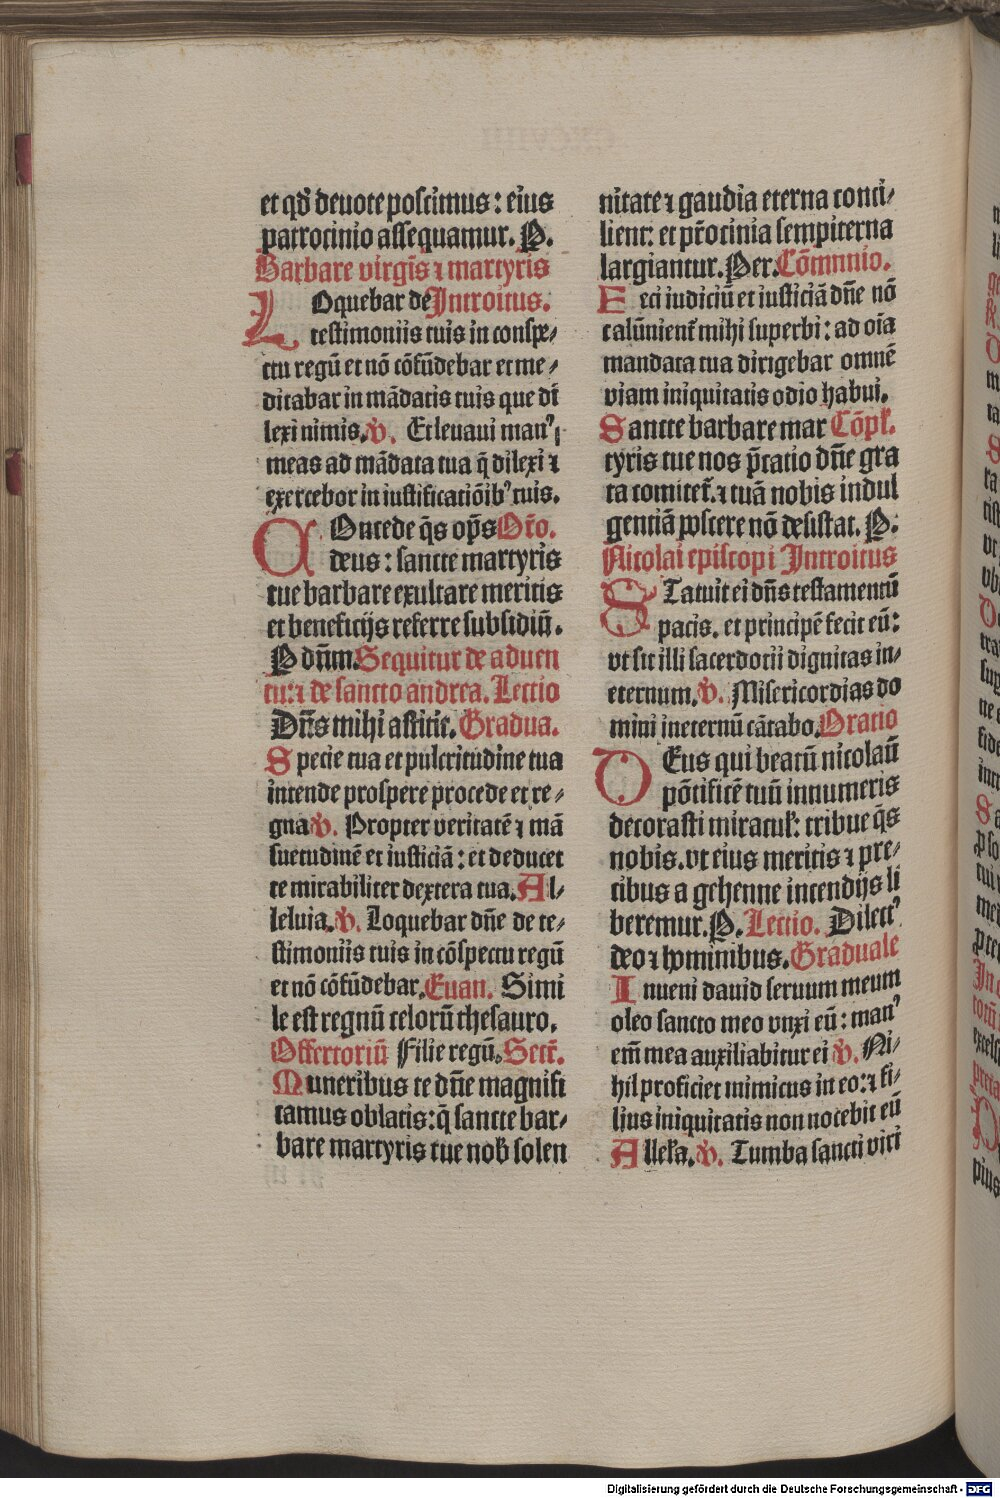 et qđ deuote poscimus: eius
patrocinio assequamur. P.
Barbare virgīs ⁊ martyris
Loquebar de Introitus.
testimoniis tuis in conspe⸗
ctu regū et nō cōfūdebar et me⸗
ditabar in mādatis tuis que di
lexi nimis. ꝟ. Et leuaui manꝰ
meas ad mādata tua q̄ dilexi ⁊
exercebor in iustificatiōibꝰ tuis.
COncede q̄s op̄s Or̄o.
deus: sancte martyris
tue barbare exultare meritis
et beneficijs referre subsidiū.
P dn̄m. Sequitur de aduen
tu: ⁊ de sancto andrea. Lectio
Dn̄s mihi astitit. Gradua.
Specie tua et pulcritudine tua
intende prospere procede et re⸗
gna ꝟ. Propter veritatē ⁊ mā
suetudinē et iusticiā: et deducet
te mirabiliter dextera tua. Al⸗
leluia. ꝟ. Loquebar dn̄e de te⸗
stimoniis tuis in cōspectu regū
et nō cōfūdebar. Euan. Simi
le est regnū celorū thesauro.
Offertoriū Filie regū. Secr̄.
Muneribus te dn̄e magnifi
camus oblatis: q̄ sancte bar⸗
bare martyris tue nob̄ solen
nitate ⁊ gaudia eterna conci⸗
lient: et pr̄ocinia sempiterna
largiantur. Per. Cōmnnio.
Feci iudiciū et iusticiā dn̄e nō
calūnient̄ mihi superbi: ad oīa
mandata tua dirigebar omnē
viam iniquitatis odio habui.
Sancte barbare mar Cōpl̄.
tyris tue nos p̄catio dn̄e gra
ta comitet̄. ⁊ tuā nobis indul
gentiā poscere nō desistat. P.
Nicolai episcopi Introitus
STatuit ei dn̄s testamentū
pacis. et principē fecit eū:
vt sit illi sacerdotii dignitas in⸗
eternum. ꝟ. Misericordias do
mini ineternū cātabo. Oratio
DEus qui beatū nicolaū
pōtificē tuū innumeris
decorasti miracul̄: tribue q̄s
nobis. vt eius meritis ⁊ pre⸗
cibus a gehenne incendijs li
beremur. P. Lectio. Dilectꝰ
deo ⁊ hominibus. Graduale
Inueni dauid seruum meum
oleo sancto meo vnxi eū: manꝰ
em̄ mea auxiliabitur ei ꝟ. Ni⸗
hil proficiet inimicus in eo: ⁊ fi⸗
lius iniquitatis non nocebit eū
Allel̄a. ꝟ. Tumba sancti viri
Digitalisierung gefördert durch die Deutsche Forschungsgemeinschaft - DFG